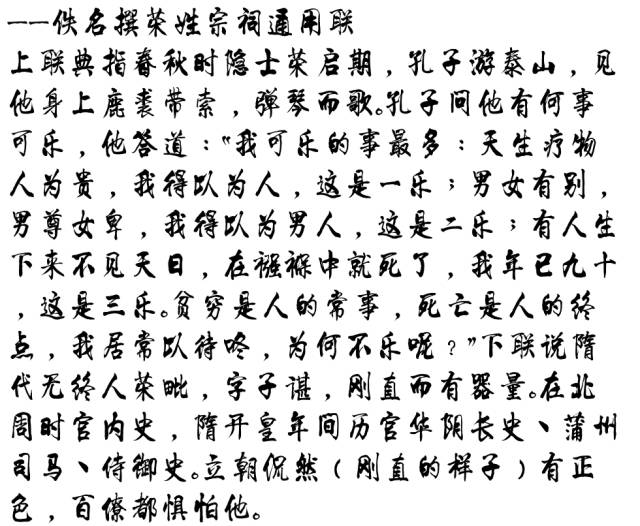 ——佚名撰荣姓宗祠通用联
上联典指春秋时隐士荣启期，孔子游泰山，见
他身上鹿裘带索，弹琴而歌。孔子问他有何事
可乐，他答道："我可乐的事最多：天生疗物
人为贵，我得以为人，这是一乐；男女有别，
男尊女卑，我得以为男人，这是二乐；有人生
下来不见天日，在襁褓中就死了，我年已九十
，这是三乐。贫穷是人的常事，死亡是人的终
点，我居常以待终，为何不乐呢？"下联说隋
代无终人荣毗，字子谌，刚直而有器量。在北
周时官内史，隋开皇年间历官华阴长史、蒲州
司马、侍御史。立朝侃然（刚直的样子）有正
色，百僚都惧怕他。